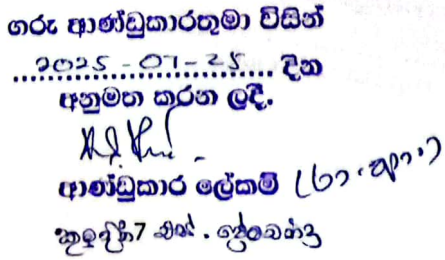 ගරු ආණ්ඩුකාරතුමා විසින්
2025-07-25 දින
අනුමත කරන ලදී.
ආණ්ඩුකාර ලේකම් (වැ.ආ.)
එස්.